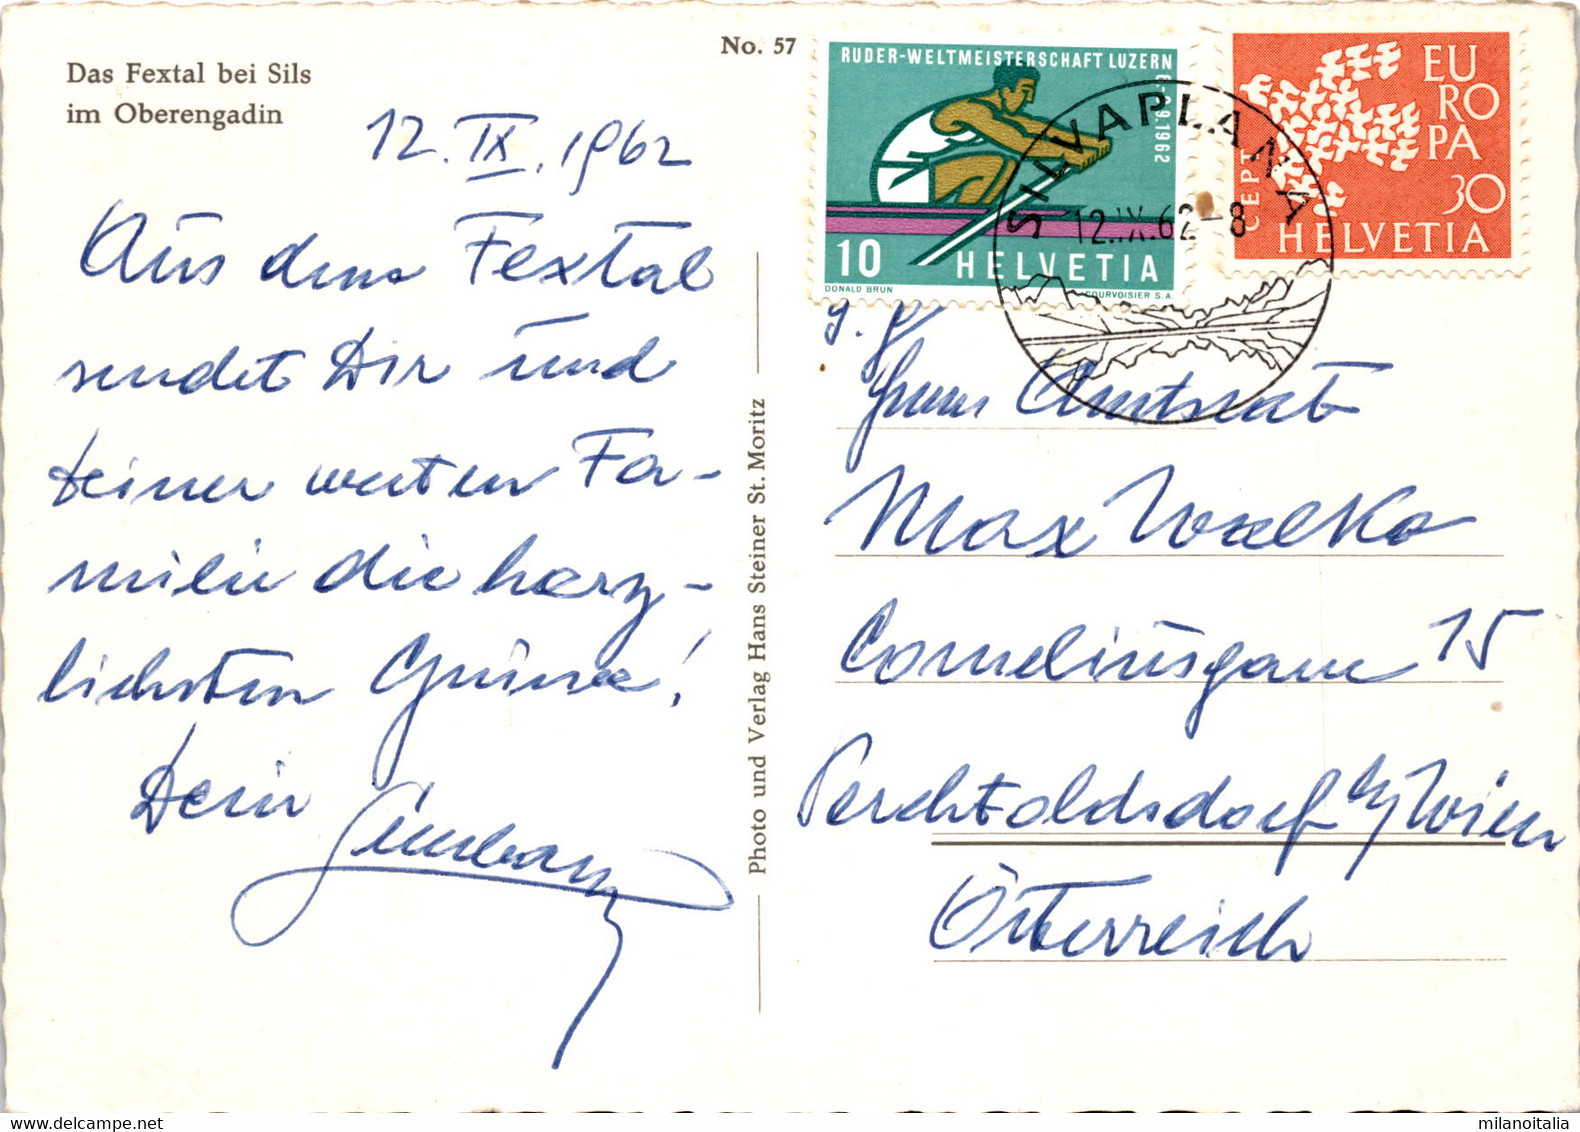 Das Fextal bei Sils
im Oberengadin
No. 57
12. IX. 1962
Aus dem Fextal
sendet Dir und
Deiner werten Fa-
milie die herz-
lichsten Grüsse!
Dein
Photo und Verlag Hans Steiner St. Moritz
RUDER-WELTMEISTERSCHAFT LUZERN
6.-9.9.1962
10 HELVETIA
DONALD BRUN
COURVOISIER S.A.
EU
RO
PA
CEPT
30
HELVETIA
SILVAPLANA
12.IX.62-8
Herrn Amtsrat
Max Walka
Corneliusgasse 15
Perchtoldsdorf b/Wien
Österreich
milanoitalia